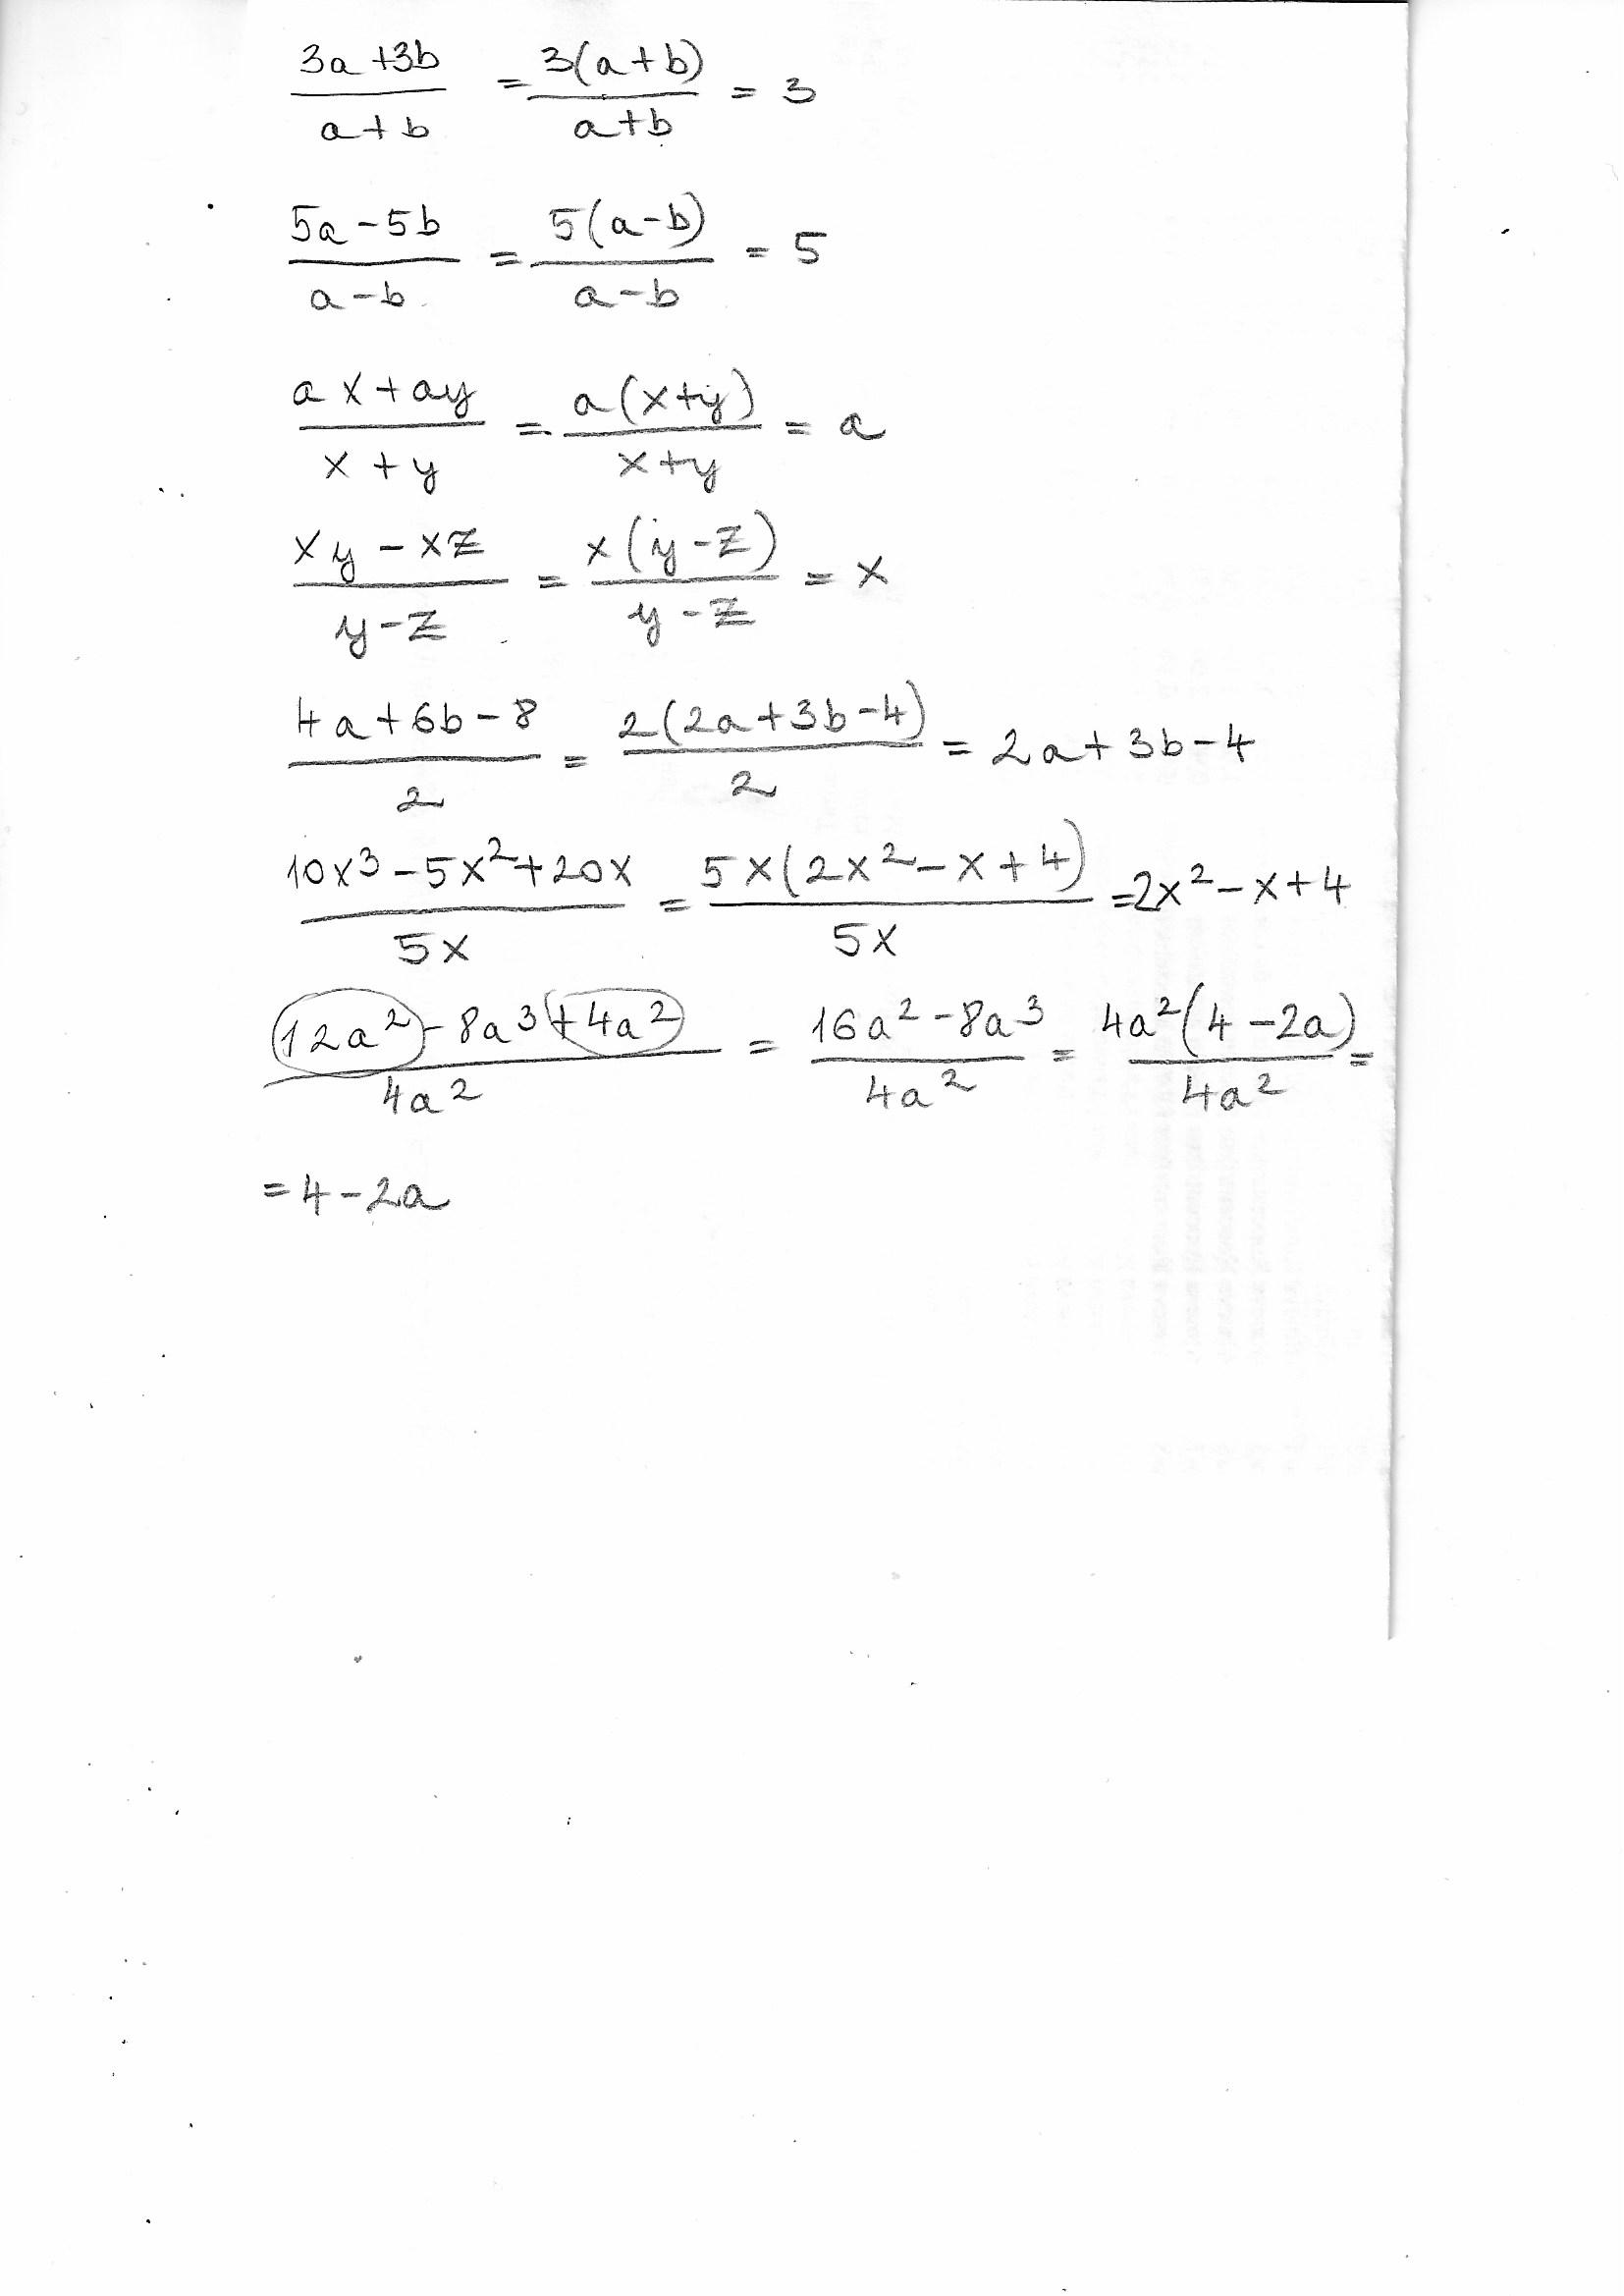 (3a+3b)/(a+b) = 3(a+b)/(a+b) = 3
(5a-5b)/(a-b) = 5(a-b)/(a-b) = 5
(ax+ay)/(x+y) = a(x+y)/(x+y) = a
(xy-xz)/(y-z) = x(y-z)/(y-z) = x
(4a+6b-8)/2 = 2(2a+3b-4)/2 = 2a+3b-4
(10x³-5x²+20x)/5x = 5x(2x²-x+4)/5x = 2x²-x+4
(12a²-8a³+4a²)/4a² = (16a²-8a³)/4a² = 4a²(4-2a)/4a² =
= 4-2a